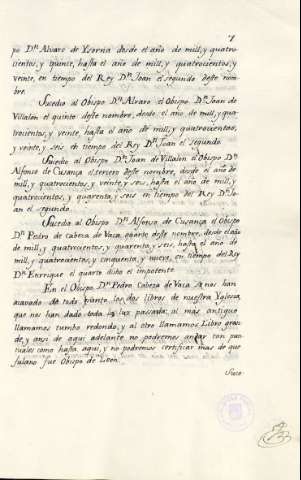 7
po Dn. Alvaro de Ysorna desde el año de mill, y quatro
cientos, y quince, hasta el año de mill, y quatrocientos, y
veynte, en tiempo del Rey Dn. Joan el segundo deste nom
bre.
Sucedio al Obispo Dn. Alvaro el Obispo Dn. Joan de
Villalon el quinto deste nombre, desde el año de mill, y qua
trocientos, y veynte, hasta el año de mill, y quatrocientos,
y veynte, y seis en tiempo del Rey Dn. Joan el segundo.
Sucedio al Obispo Dn. Joan de Villalon el Obispo Dn.
Alfonso de Cusança el tercero deste nombre, desde el año de
mill, y quatrocientos, y veynte, y seis, hasta el año de mill, y
quatrocientos, y quarenta, y seis en tiempo del Rey Dn. Jo
an el segundo.
Sucedio al Obispo Dn. Alfonso de Cusança el Obispo
Dn. Pedro de cabeça de Vaca, quarto deste nombre, desde el año
de mill, y quatrocientos, y quarenta, y seis, hasta el año de
mill, y quatrocientos, y cinquenta, y nueve, en tiempo del Rey
Dn. Enrrique el quarto dito el impotente.
En el Obispo Dn. Pedro Cabeça de Vaca se nos han
acavado de todo punto los dos libros de nuestra Yglesia,
que nos han dado toda la luz passada; al mas antiguo
llamamos tumbo redondo, y al otro llamamos Libro gran
de, y ansi de aqui adelante no podremos andar tan pun
tuales como hasta aqui, y no podremos certificar mas de que
fulano fue Obispo de Leon.
Suce